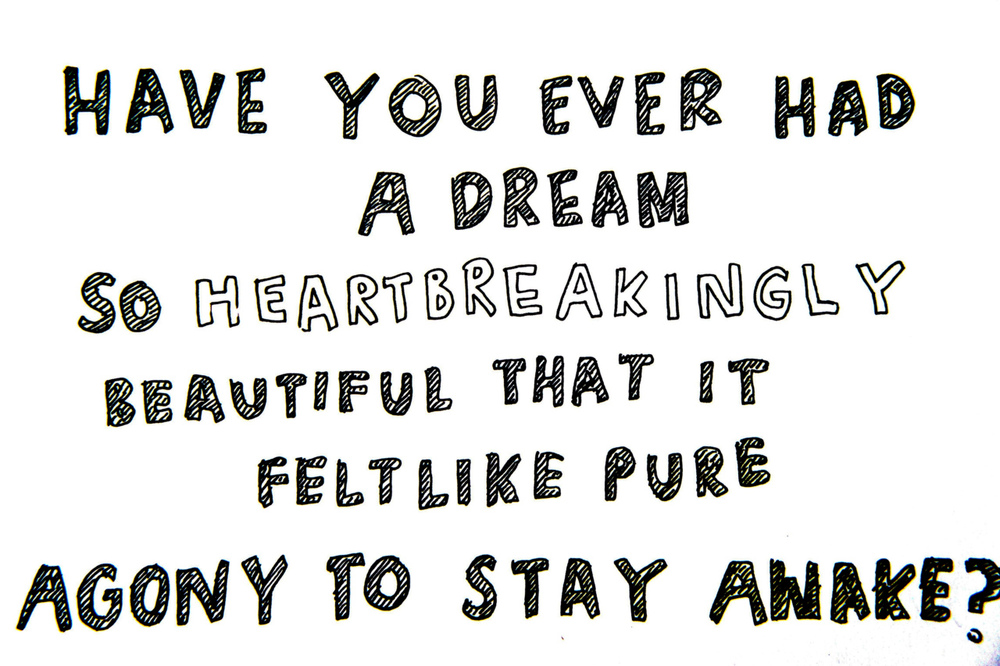 HAVE YOU EVER HAD
A DREAM
SO HEARTBREAKINGLY
BEAUTIFUL THAT IT
FELT LIKE PURE
AGONY TO STAY AWAKE?